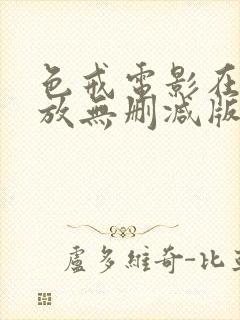 色戒電影在
放無删減版
盧多維奇-比亞